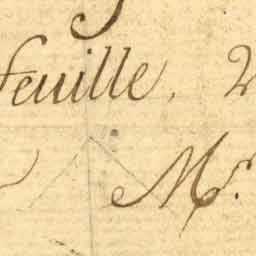 feuille, 2
Mr.